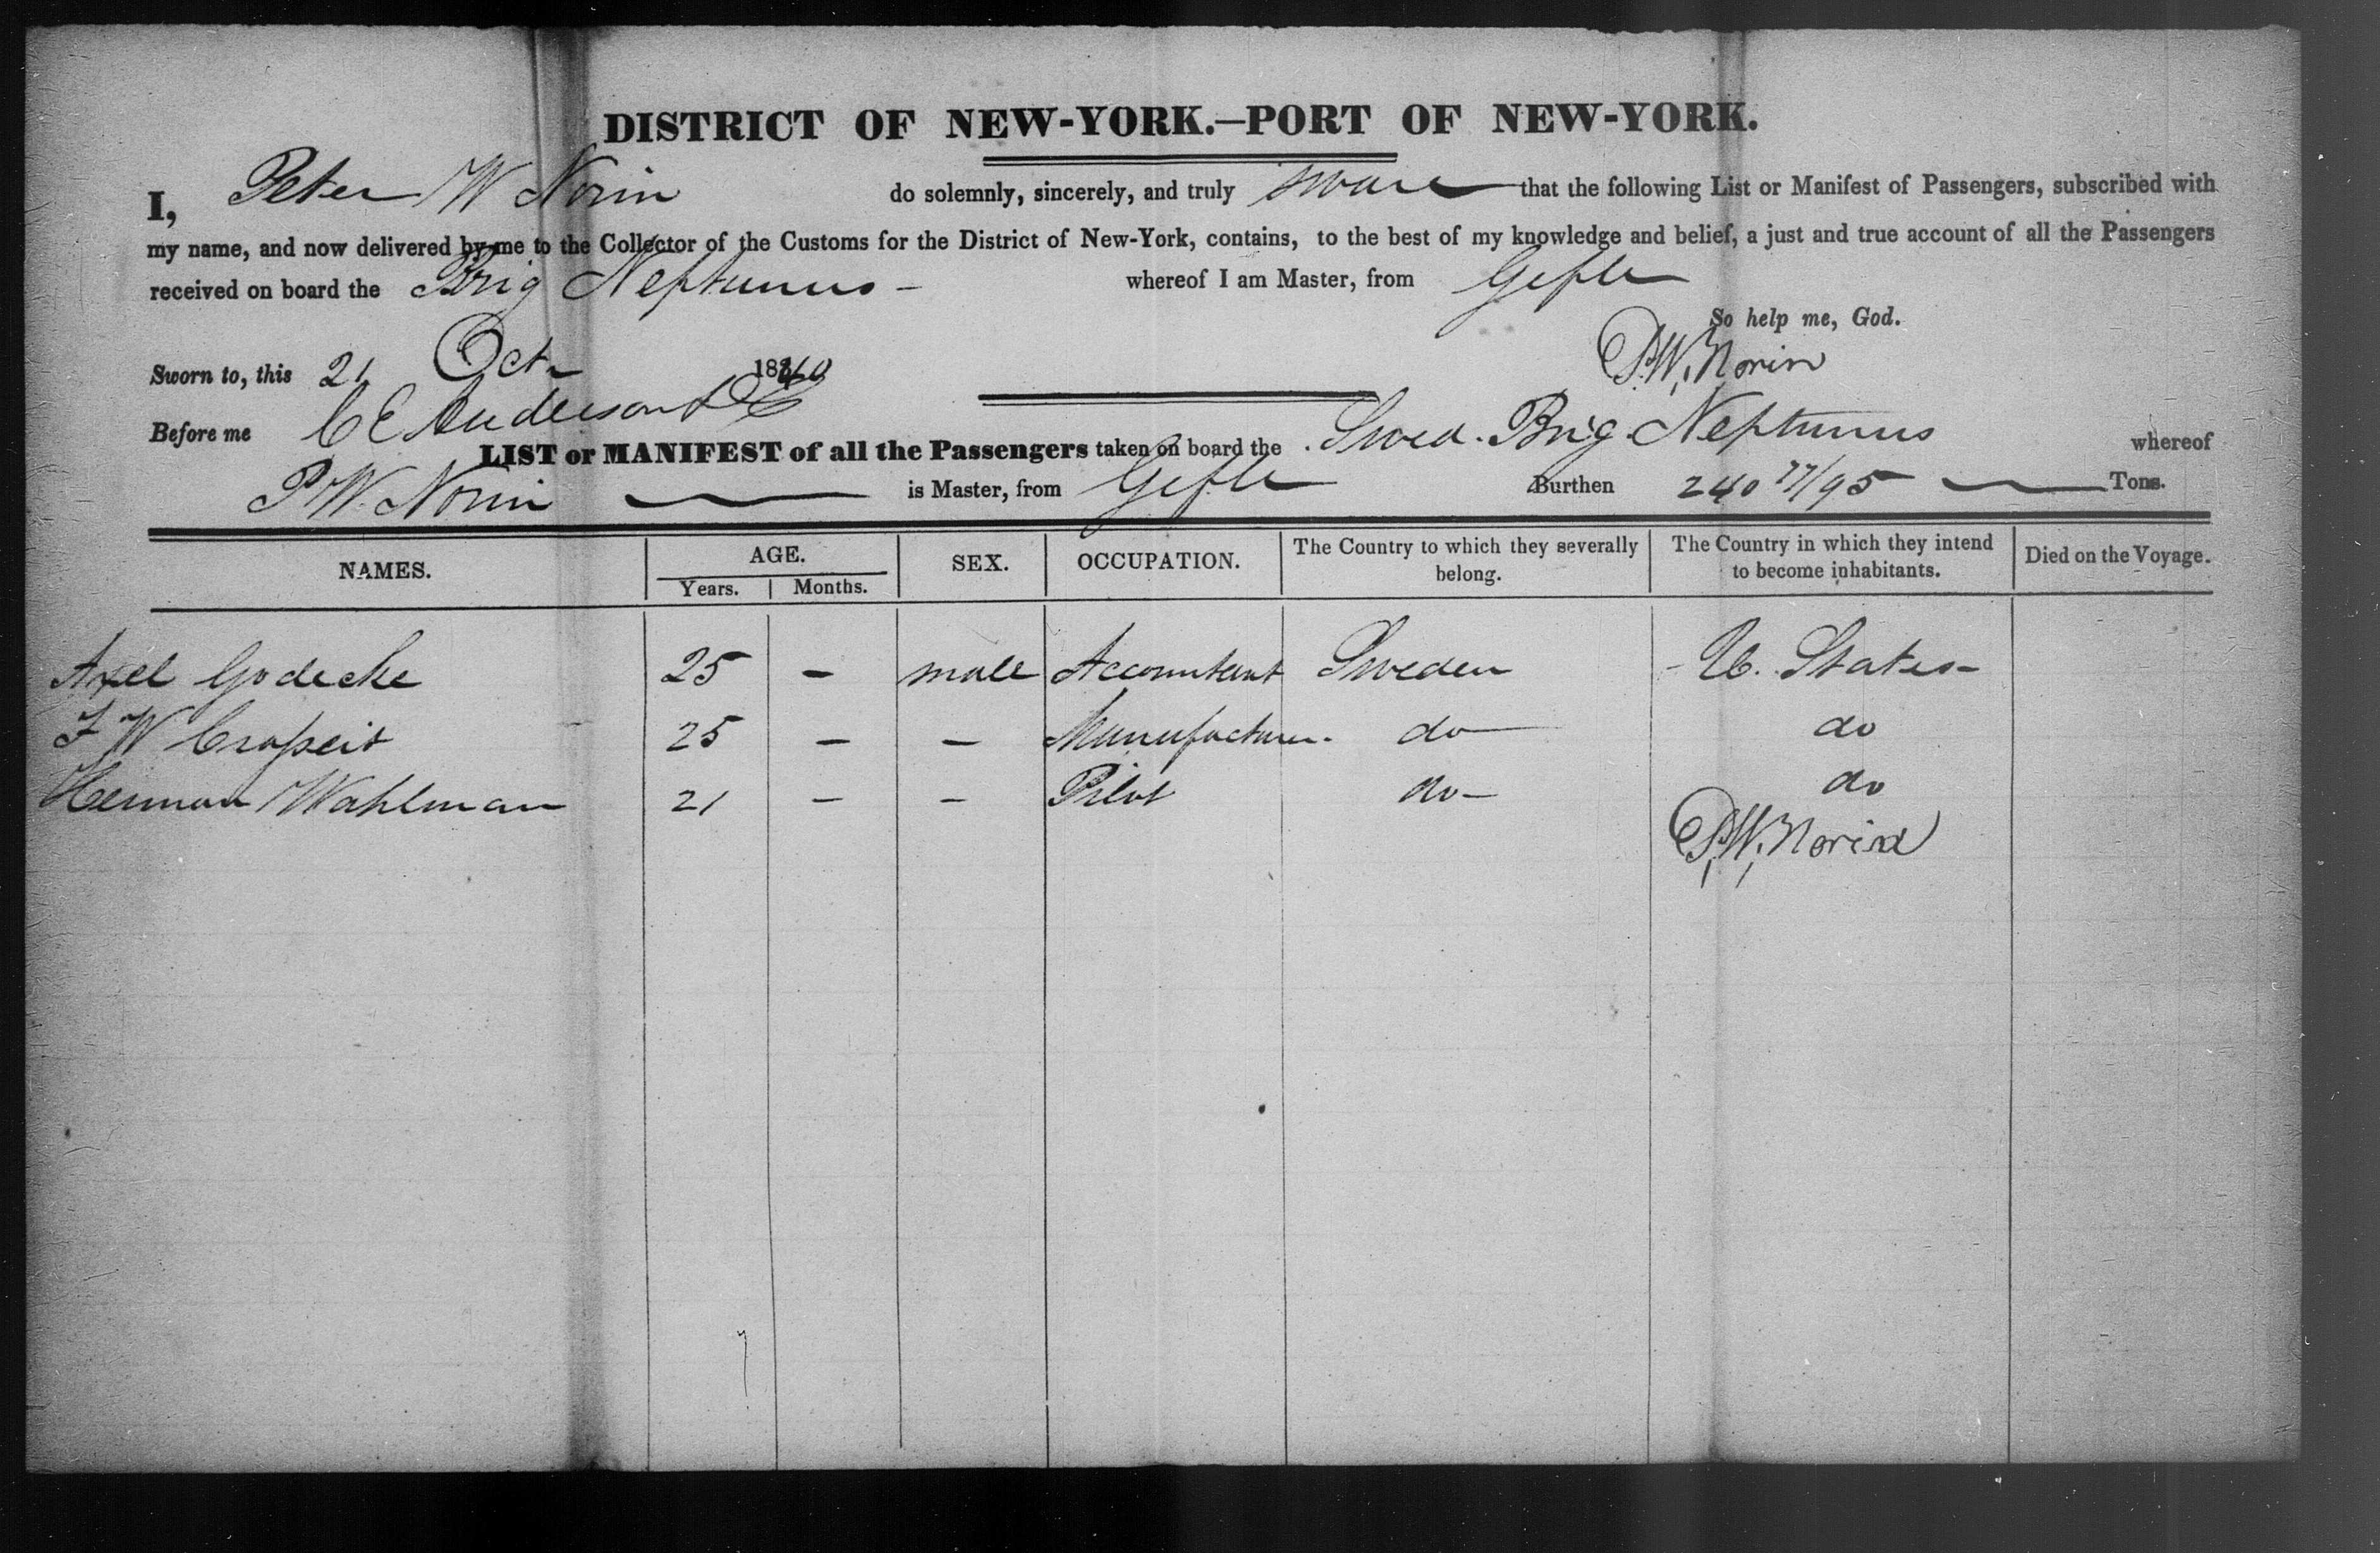 DISTRICT OF NEW-YORK.—PORT OF NEW-YORK.
I, Peter W Norin do solemnly, sincerely, and truly sware that the following List or Manifest of Passengers, subscribed with
my name, and now delivered by me to the Collector of the Customs for the District of New-York, contains, to the best of my knowledge and belief, a just and true account of all the Passengers
received on board the Brig Neptunus - whereof I am Master, from Gefle
So help me, God.
Sworn to, this 21 Oct 1840 P.W. Norin
Before me C E Anderson
LIST or MANIFEST of all the Passengers taken on board the Swed. Brig Neptunus whereof
P W. Norin is Master, from Gefle Burthen 240 77/95 Tons.
NAMES. AGE. SEX. OCCUPATION. The Country to which they severally belong. The Country in which they intend to become inhabitants. Died on the Voyage.
Years. Months.
Axel Godecke 25 - male Accountant Sweden - U. States -
F W 25 - - Manufacturer. do do
Herman Wahlman 21 - - Pilot do - do
P.W. Norin